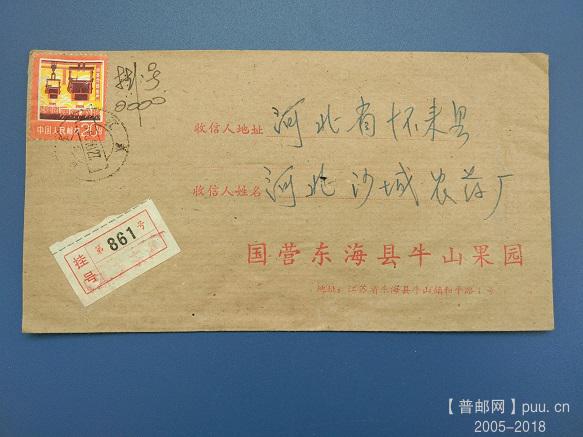 中国人民邮政 20分
挂号
收信人地址 河北省怀来县
收信人姓名 河北沙城农药厂
第861号
挂号
国营东海县牛山果园
地址：江苏省东海县牛山镇和平路1号
【普邮网】puu.cn
2005-2018